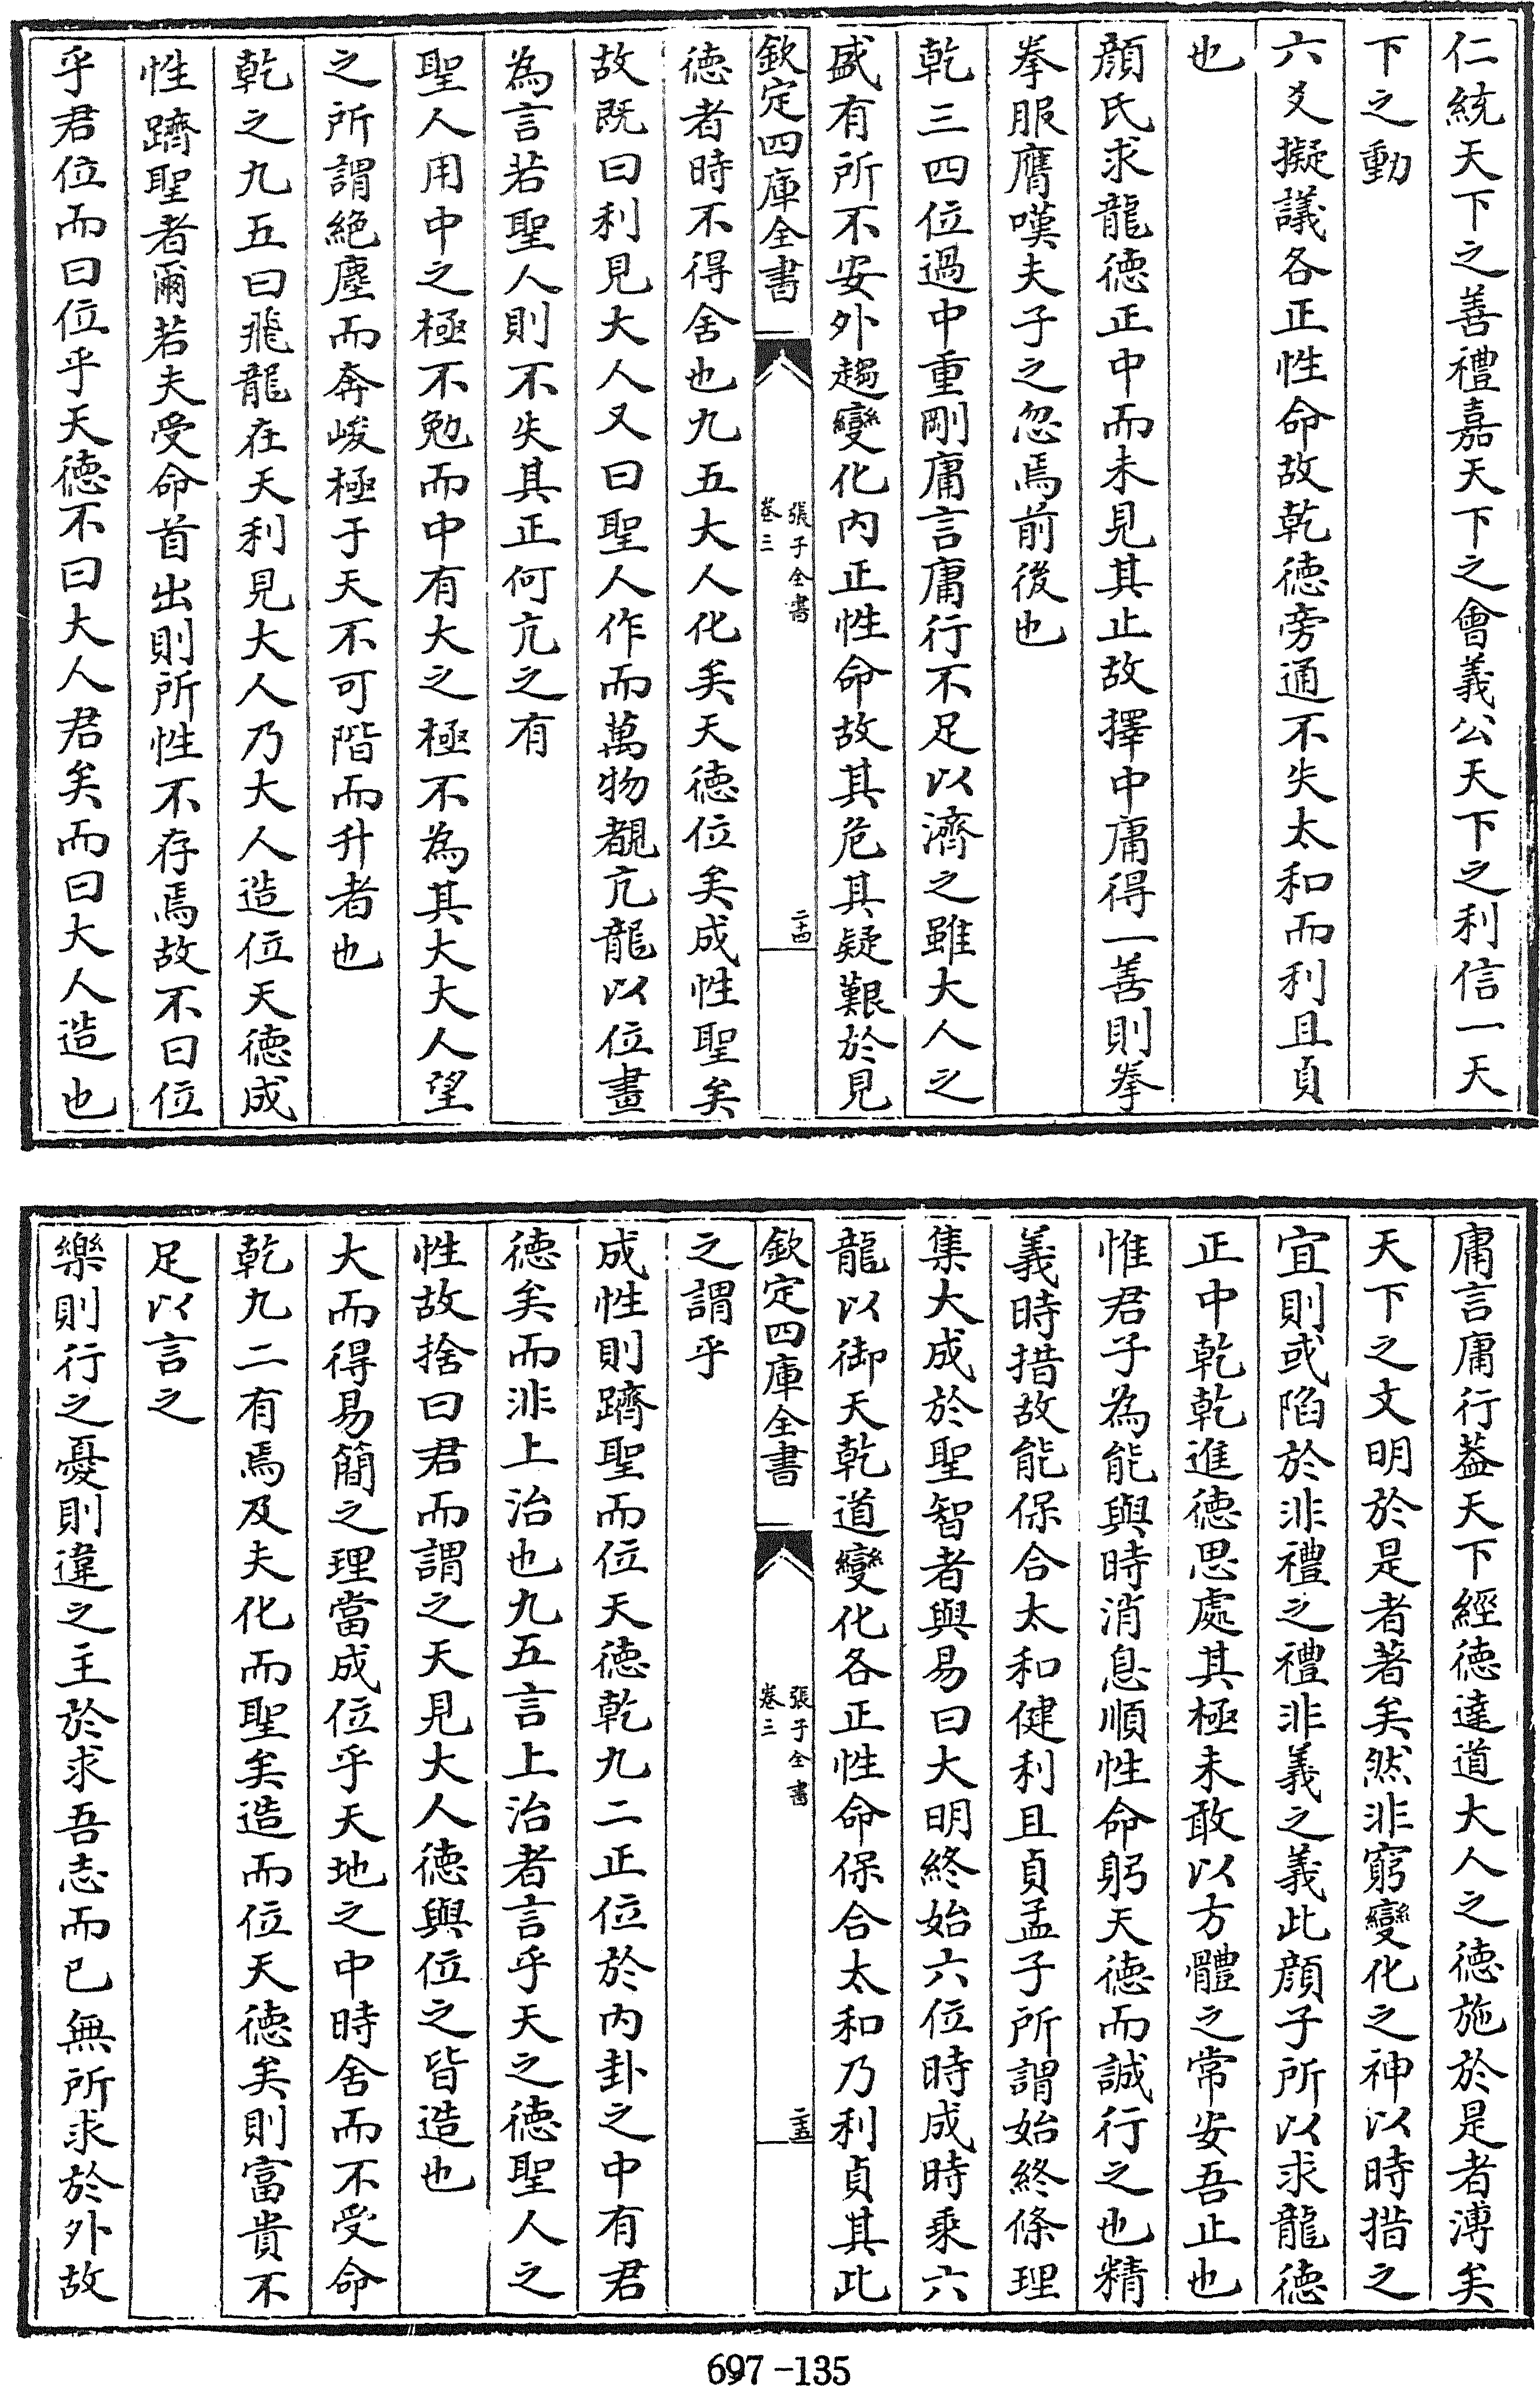 仁統天下之善禮嘉天下之會義公天下之利信一天
下之動
六爻擬議各正性命故乾徳旁通不失太和而利且貞
也
顔氏求龍徳正中而未見其止故擇中庸得一善則拳
拳服膺嘆夫子之忽焉前後也
乾三四位過中重剛庸言庸行不足以濟之雖大人之
盛有所不安外趨變化内正性命故其危其疑艱於見
欽定四庫全書
張子全書
卷三
二十四
徳者時不得舍也九五大人化矣天徳位矣成性聖矣
故既曰利見大人又曰聖人作而萬物覩亢龍以位畫
為言若聖人則不失其正何亢之有
聖人用中之極不勉而中有大之極不為其大大人望
之所謂絶塵而奔峻極于天不可階而升者也
乾之九五曰飛龍在天利見大人乃大人造位天徳成
性躋聖者爾若夫受命首出則所性不存焉故不曰位
乎君位而曰位乎天徳不曰大人君矣而曰大人造也
庸言庸行葢天下經徳達道大人之徳施於是者溥矣
天下之文明於是者著矣然非窮變化之神以時措之
宜則或陷於非禮之禮非義之義此顔子所以求龍徳
正中乾乾進徳思處其極未敢以方體之常安吾止也
惟君子為能與時消息順性命躬天徳而誠行之也精
義時措故能保合太和健利且貞孟子所謂始終條理
集大成於聖智者與易曰大明終始六位時成時乘六
龍以御天乾道變化各正性命保合太和乃利貞其此
欽定四庫全書
張子全書
卷三
二十五
之謂乎
成性則躋聖而位天徳乾九二正位於内卦之中有君
徳矣而非上治也九五言上治者言乎天之徳聖人之
性故捨曰君而謂之天見大人徳與位之皆造也
大而得易簡之理當成位乎天地之中時舍而不受命
乾九二有焉及夫化而聖矣造而位天徳矣則富貴不
足以言之
樂則行之憂則違之主於求吾志而已無所求於外故
697-135